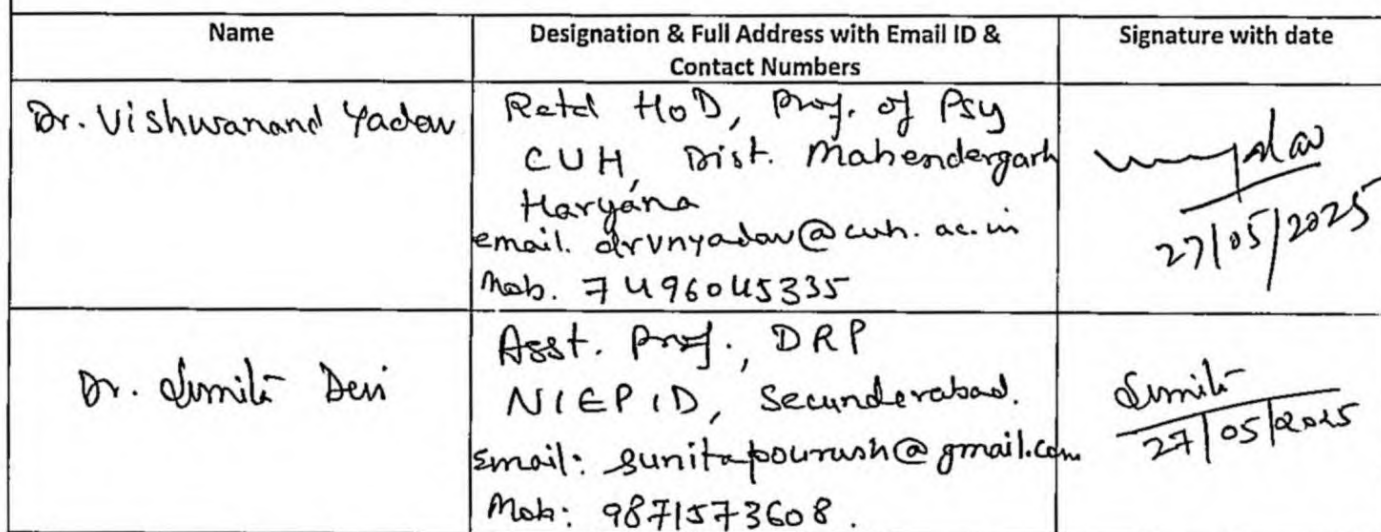 Name
Designation & Full Address with Email ID &
Contact Numbers
Signature with date
Dr. Vishwanand Yadav
Retd HoD, Prof. of Psy
CUH, Dist. Mahendergarh
Haryana
email. drvnyadav@cuh.ac.in
Mob. 7496045335
27/05/2025
Dr. Sunita Devi
Asst. Prof., DRP
NIEPID, Secunderabad.
Email: sunitapourush@gmail.com
Mob: 9871573608.
Sunita
27/05/2025